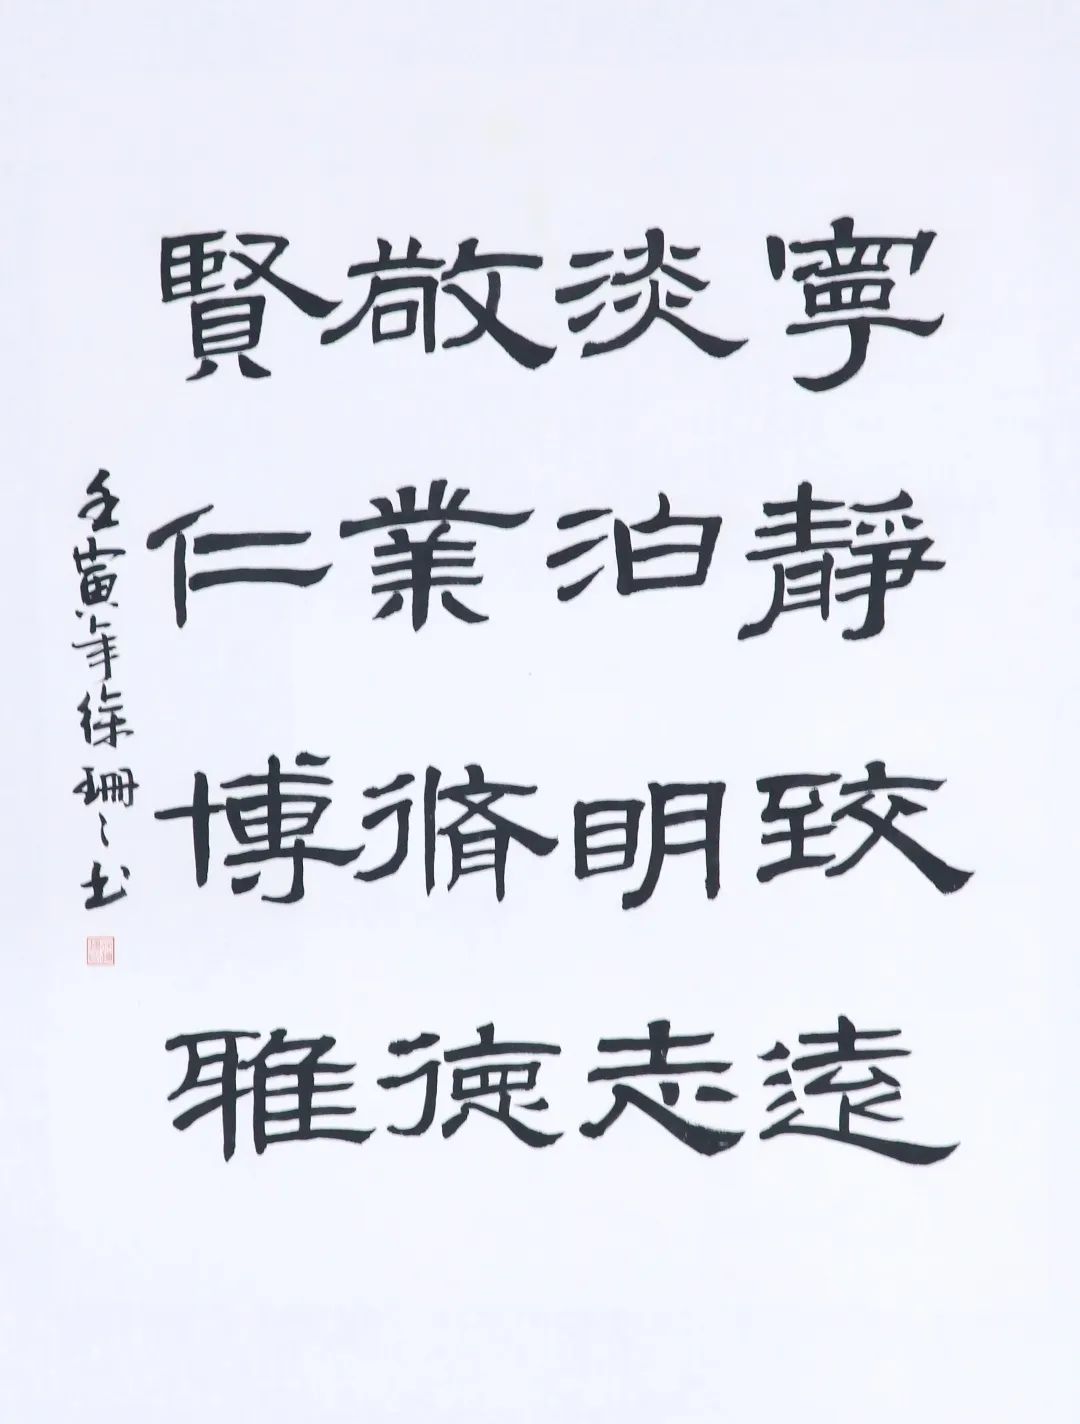 寧靜致遠
淡泊明志
敬業脩德
賢仁博雅
壬寅年徐珊〻书